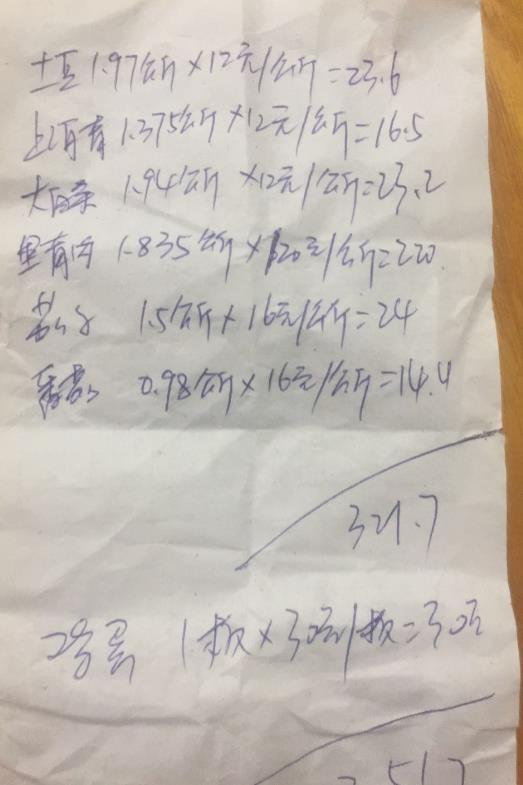 土豆 1.97公斤×12元/公斤=23.6
上海青 1.375公斤×12元/公斤=16.5
大白菜 1.94公斤×12元/公斤=23.2
黑青肉 1.835公斤×120元/公斤=220
1.5公斤×16元/公斤=24
0.98公斤×16元/公斤=14.4
321.7
1板×30元/板=30元
351.7